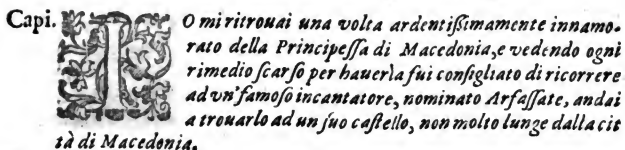 Capi. IO mi ritrouai una volta ardentißimamente innamo-
rato della Principeſſa di Macedonia, e vedendo ogni
rimedio ſcarſo per hauerla fui conſigliato di ricorrere
ad vn'famoſo incantatore, nominato Arfaſſate, andai
a trouarlo ad un ſuo caſtello, non molto lunge dalla cit
tà di Macedonia.